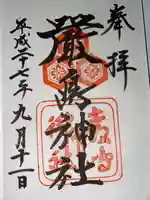 奉拝
嚴島神社
平成二十七年九月十一日